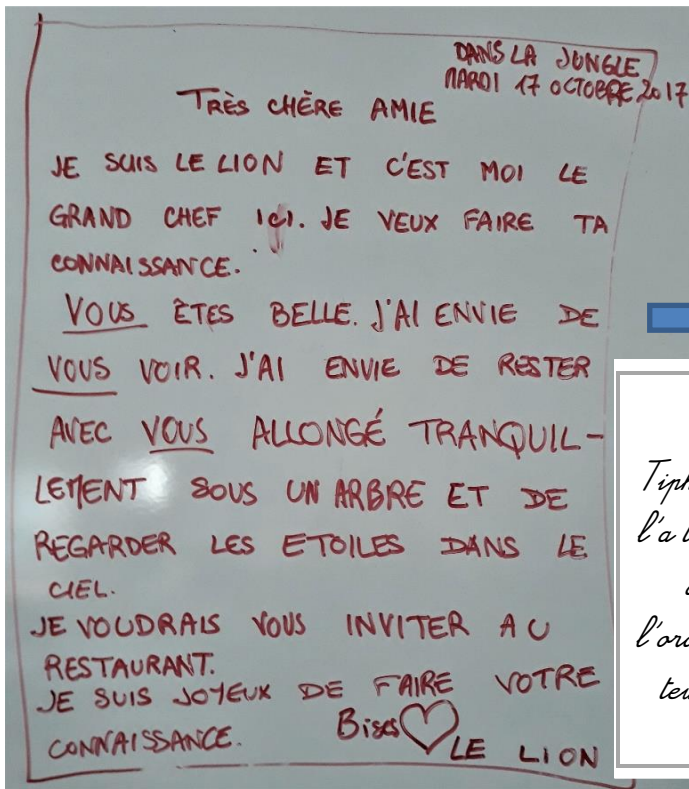 DANS LA JUNGLE
MARDI 17 OCTOBRE 2017
TRÈS CHÈRE AMIE
JE SUIS LE LION ET C'EST MOI LE
GRAND CHEF ICI. JE VEUX FAIRE TA
CONNAISSANCE.
VOUS ÊTES BELLE. J'AI ENVIE DE
VOUS VOIR. J'AI ENVIE DE RESTER
AVEC VOUS ALLONGÉ TRANQUIL-
LEMENT SOUS UN ARBRE ET DE
REGARDER LES ETOILES DANS LE
CIEL.
JE VOUDRAIS VOUS INVITER AU
RESTAURANT.
JE SUIS JOYEUX DE FAIRE VOTRE
CONNAISSANCE.
Bises
LE LION
l'a